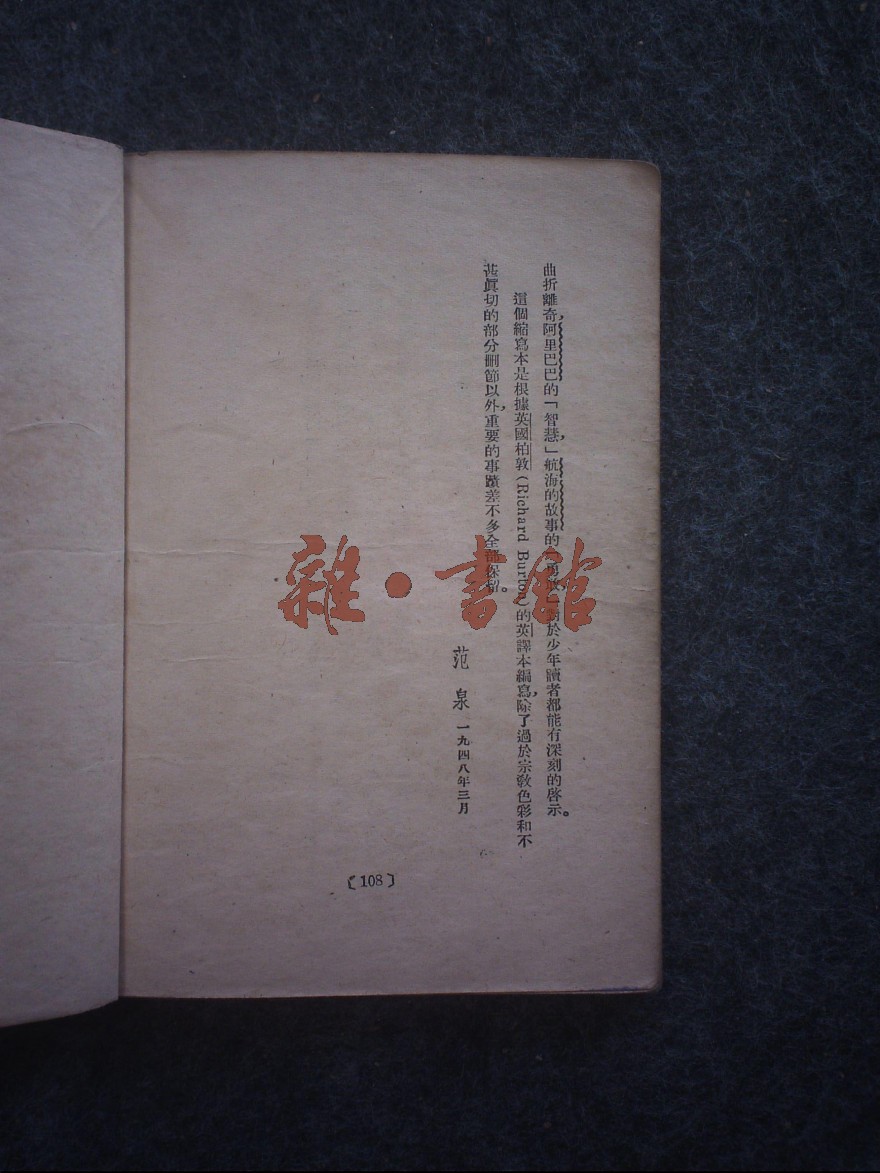 曲折離奇,阿里巴巴的「智慧,」航海的故事的「勇敢,」對於少年讀者都能有深刻的啓示。
這個縮寫本是根據英國柏敦(Richard Burton)的英譯本編寫,除了過於宗教色彩和不
甚眞切的部分刪節以外,重要的事蹟差不多全部保留。
范泉 一九四八年三月
〔108〕
雜·書館